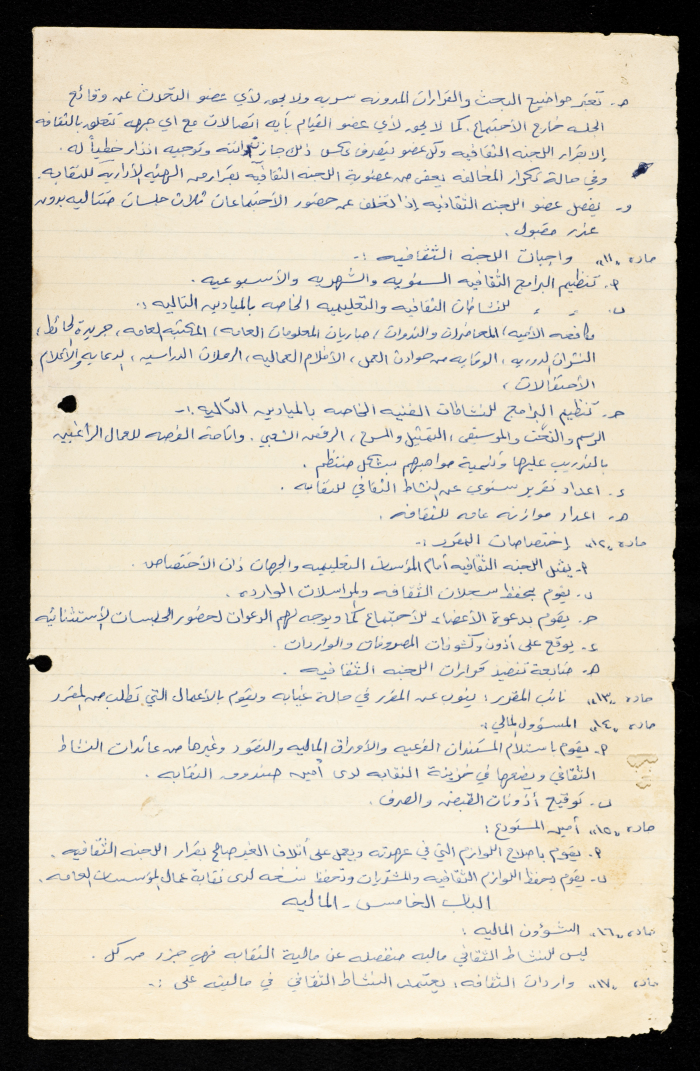 هـ- تعتبر مواضيع البحث والقرارات المدونه سريه ولا يجوز لأي عضو التحدث عن وقائع
الجلسه خارج الأجتماع. كما لا يجوز لأي عضو القيام بأيه اتصالات مع اي جهه تتعلق بالثقافه
إلا بقرار اللجنه الثقافيه وكل عضو يتصرف عكس ذلك جاز وتوجيه انذار خطياً له.
وفي حالة تكرار المخالفه يعفى من عضوية اللجنه الثقافيه بقرار من الهيئه الأداريه للنقابه.
و- يفصل عضو اللجنه الثقافيه إذا تخلف عن حضور الأجتماعات ثلاث جلسات متتاليه بدون
عذر مقبول.
ماده "١١" واجبات اللجنه الثقافيه :-
أ. تنظيم البرامج الثقافيه السنويه والشهريه والأسبوعيه.
ب. " " للنشاطات الثقافيه والتعليميه الخاصه بالميادين التاليه :-
مكافحه الأميه، المحاضرات والندوات، مباريات المعلومات العامه، المكتبه العامه، جريدة الحائط،
النشرات الدوريه، الوقايه من حوادث العمل، الأفلام العماليه، الرحلات الدراسيه، الدعايه والأعلام
الأحتفالات،
جـ- تنظيم البرامج للنشاطات الفنيه الخاصه بالميادين التاليه :-
الرسم والنحت والموسيقى، التمثيل والمسرح، الرقص الشعبي. واتاحة الفرصه للعمال الراغبين
بالتدريب عليها وتنمية مواهبهم بشكل منتظم.
د- اعداد تقرير سنوي عن النشاط الثقافي للنقابه.
هـ- اعداد موازنه عامه للثقافه.
ماده "١٢" إختصاصات المقرر :-
أ- يمثل اللجنه الثقافيه أمام المؤسسات التعليميه والجهات ذات الأختصاص.
ب- يقوم بحفظ سجلات الثقافه والمراسلات الوارده.
جـ- يقوم بدعوة الأعضاء للأجتماع كما ويوجه لهم الدعوات لحضور الجلسات الأستثنائيه
د- يوقع على أذون وكشوفات المصروفات والواردات.
هـ- متابعة تنفيذ قرارات اللجنه الثقافيه.
ماده "١٣" نائب المقرر: ينوب عن المقرر في حالة غيابه ويقوم بالأعمال التي تطلب من المقرر
ماده "١٤" المسؤول المالي :-
أ- يقوم باستلام المستندات الفرعيه والأوراق الماليه والنقود وغيرها من عائدات النشاط
الثقافي ويضعها في خزينة النقابه لدى أمين صندوق النقابه.
ب- توقيع أذونات القبض والصرف.
ماده "١٥" أمين المستودع :
أ- يقوم باصلاح اللوازم التي في عهدته ويعمل على أتلاف الغير صالح بقرار اللجنه الثقافيه.
ب- يقوم بحفظ اللوازم الثقافيه والمشتريات وتحفظ نسخه لدى نقابة عمال المؤسسات العامه.
الباب الخامس - الماليه
ماده "١٦" الشؤون الماليه :
ليس للنشاط الثقافي ماليه منفصله عن مالية النقابه فهي جزء من كل.
ماده "١٧" واردات الثقافه: يعتمد النشاط الثقافي في ماليته على :-